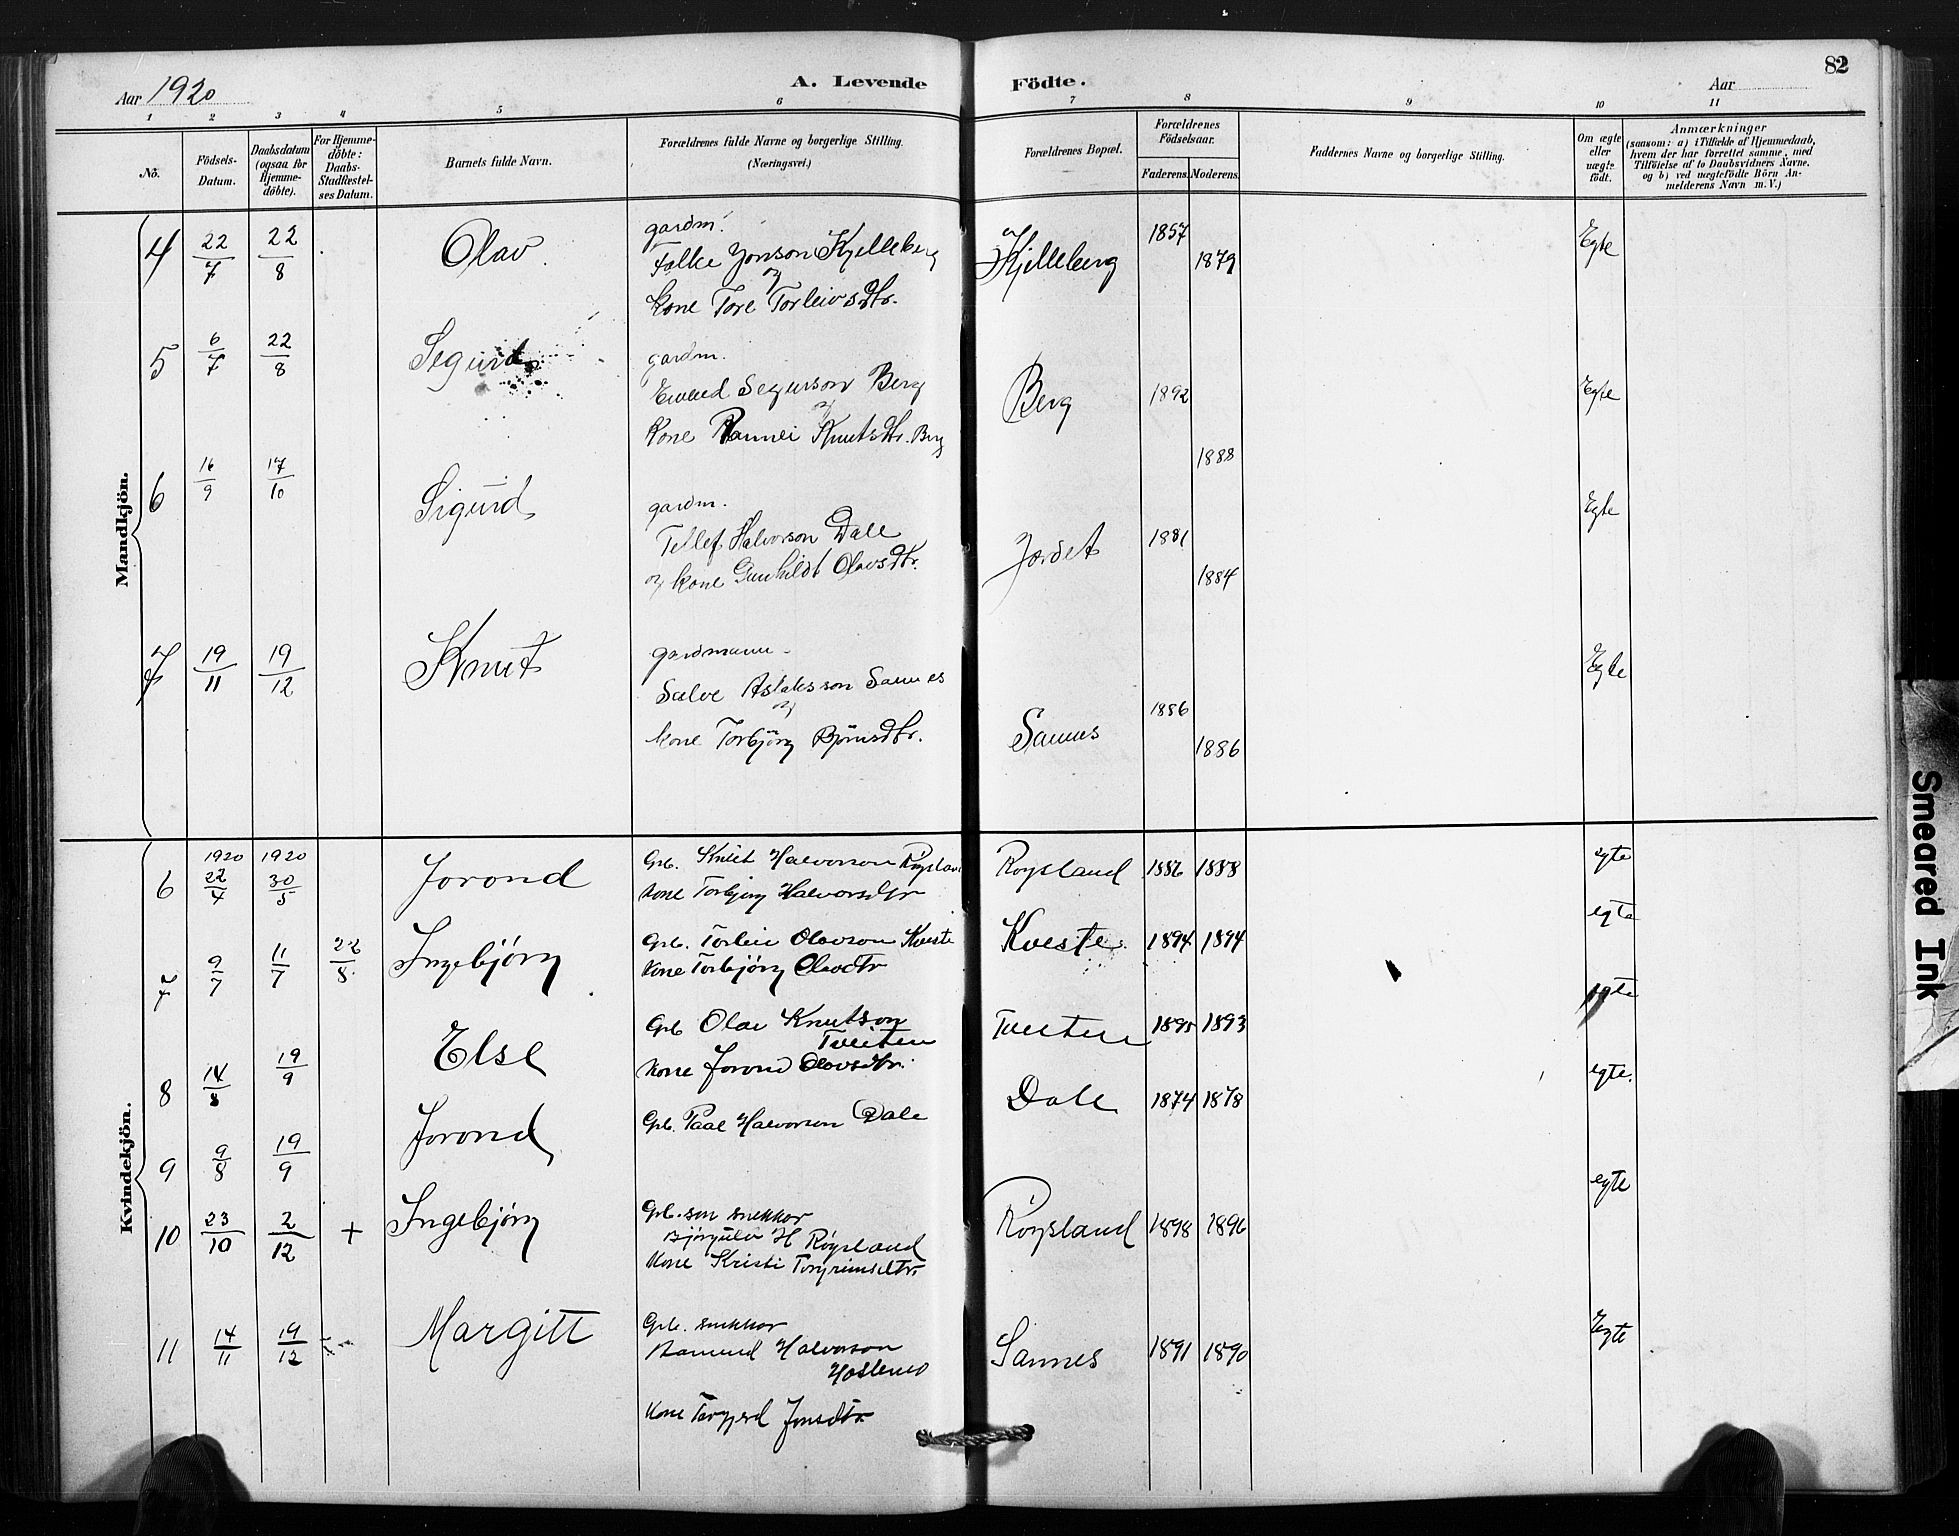 Aar 1920
A. Levende Födte.
82
Aar
1 2 3 4 5 6 7 8 9 10 11
No.
Födsels-Datum.
Daabsdatum (ogsaa för Hjemme-döbte).
For Hjemme-döbte: Daabs-Stadfæstel-ses Datum.
Barnets fulde Navn.
Forældrenes fulde Navne og borgerlige Stilling. (Næringsvei.)
Forældrenes Bopæl.
Forældrenes Födselsaar.
Faderens. Moderens.
Faddernes Navne og borgerlige Stilling.
Om ægte eller uægte födt.
Anmærkninger
(saasom: a) i Tilfælde af Hjemmedaab, hvem der har forrettet samme, med Tilföielse af to Daabsvidners Navne, og b) ved uægtefödte Börn An-melderens Navn m. V.)
Mandkjön.
4 22/7 22/8 Olav gardm. Kjelleberg 1857 1879 Egte
Folke Jonson Kjelleberg
og
kone Tore Torleivsdtr.
5 6/7 22/8 Segurd gardm. Berg 1892 1888 Egte
Segurson Berg
og
kone Rannei Knutsdtr. Berg
6 16/9 17/10 Sigurd gardm. Jordet 1881 1884 Egte
Tellef Halvorson Dale
og kone Gunhildt Olavsdtr.
7 19/11 19/12 Knut gardmann Sannes 1886 1886 Egte
Salve Aslaksson Sannes
og
kone Torbjörg Björnsdtr.
Kvindekjön.
1920 1920
6 22/4 30/5 Jorond Grb. Knut Halvorson Röysland Roysland 1886 1888 egte
kone Torbjörg Halvorsdtr
7 9/7 11/7 22/8 Ingebjörg Grb. Torleiv Olavson Kveste Kveste 1894 1894 egte
kone Torbjörg Olavdtr
8 14/8 19/9 Else Grb Olav Knutson Tveiten Tveiten 1893 egte
kone Jorond Olavsdtr.
9 9/8 19/9 Jorond Grb. Paal Halvorson Dale Dale 1874 1878 egte.
10 23/10 2/12 + Ingebjörg Grb. son snekkar Röysland 1898 1896 egte
Bjørgulv H Røysland
kone Kristi Torgrimsdtr.
11 14/11 19/12 Margitt Grb. snekkar Sannes 1891 1890 Egte
Halvorson
kone Torgjerd Jonsdtr
Smeared Ink